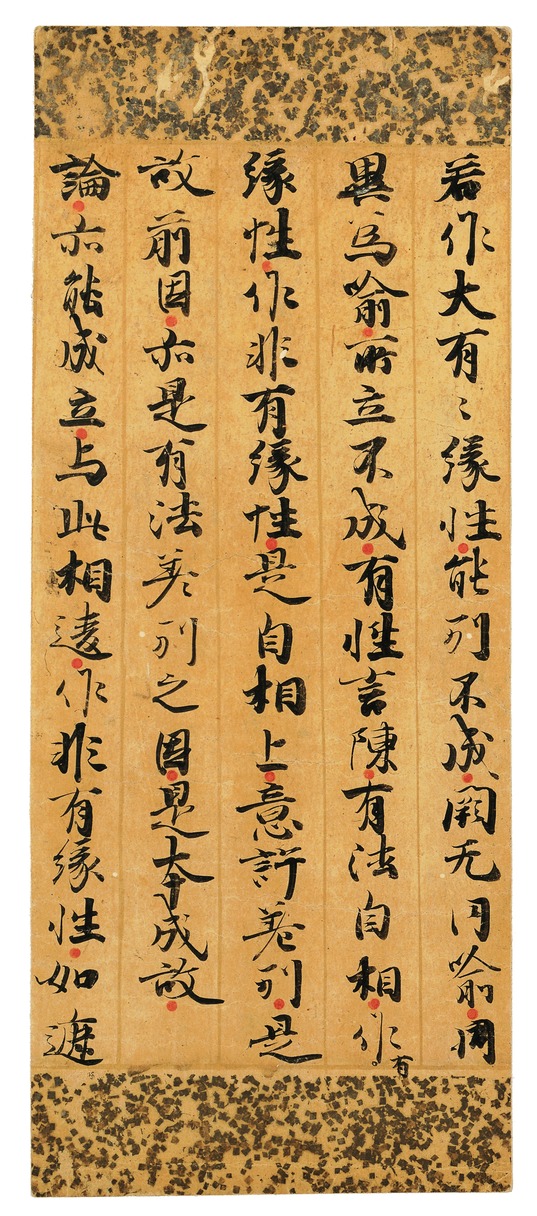 若作大有〻緣性能別不成闕无同喻因
異為喻所立不成有性言陳有法自相作有
緣性作非有緣性是自相上意許差別是
故前因亦是有法差別之因是本成故
論亦能成立与此相違作非有緣性如遮